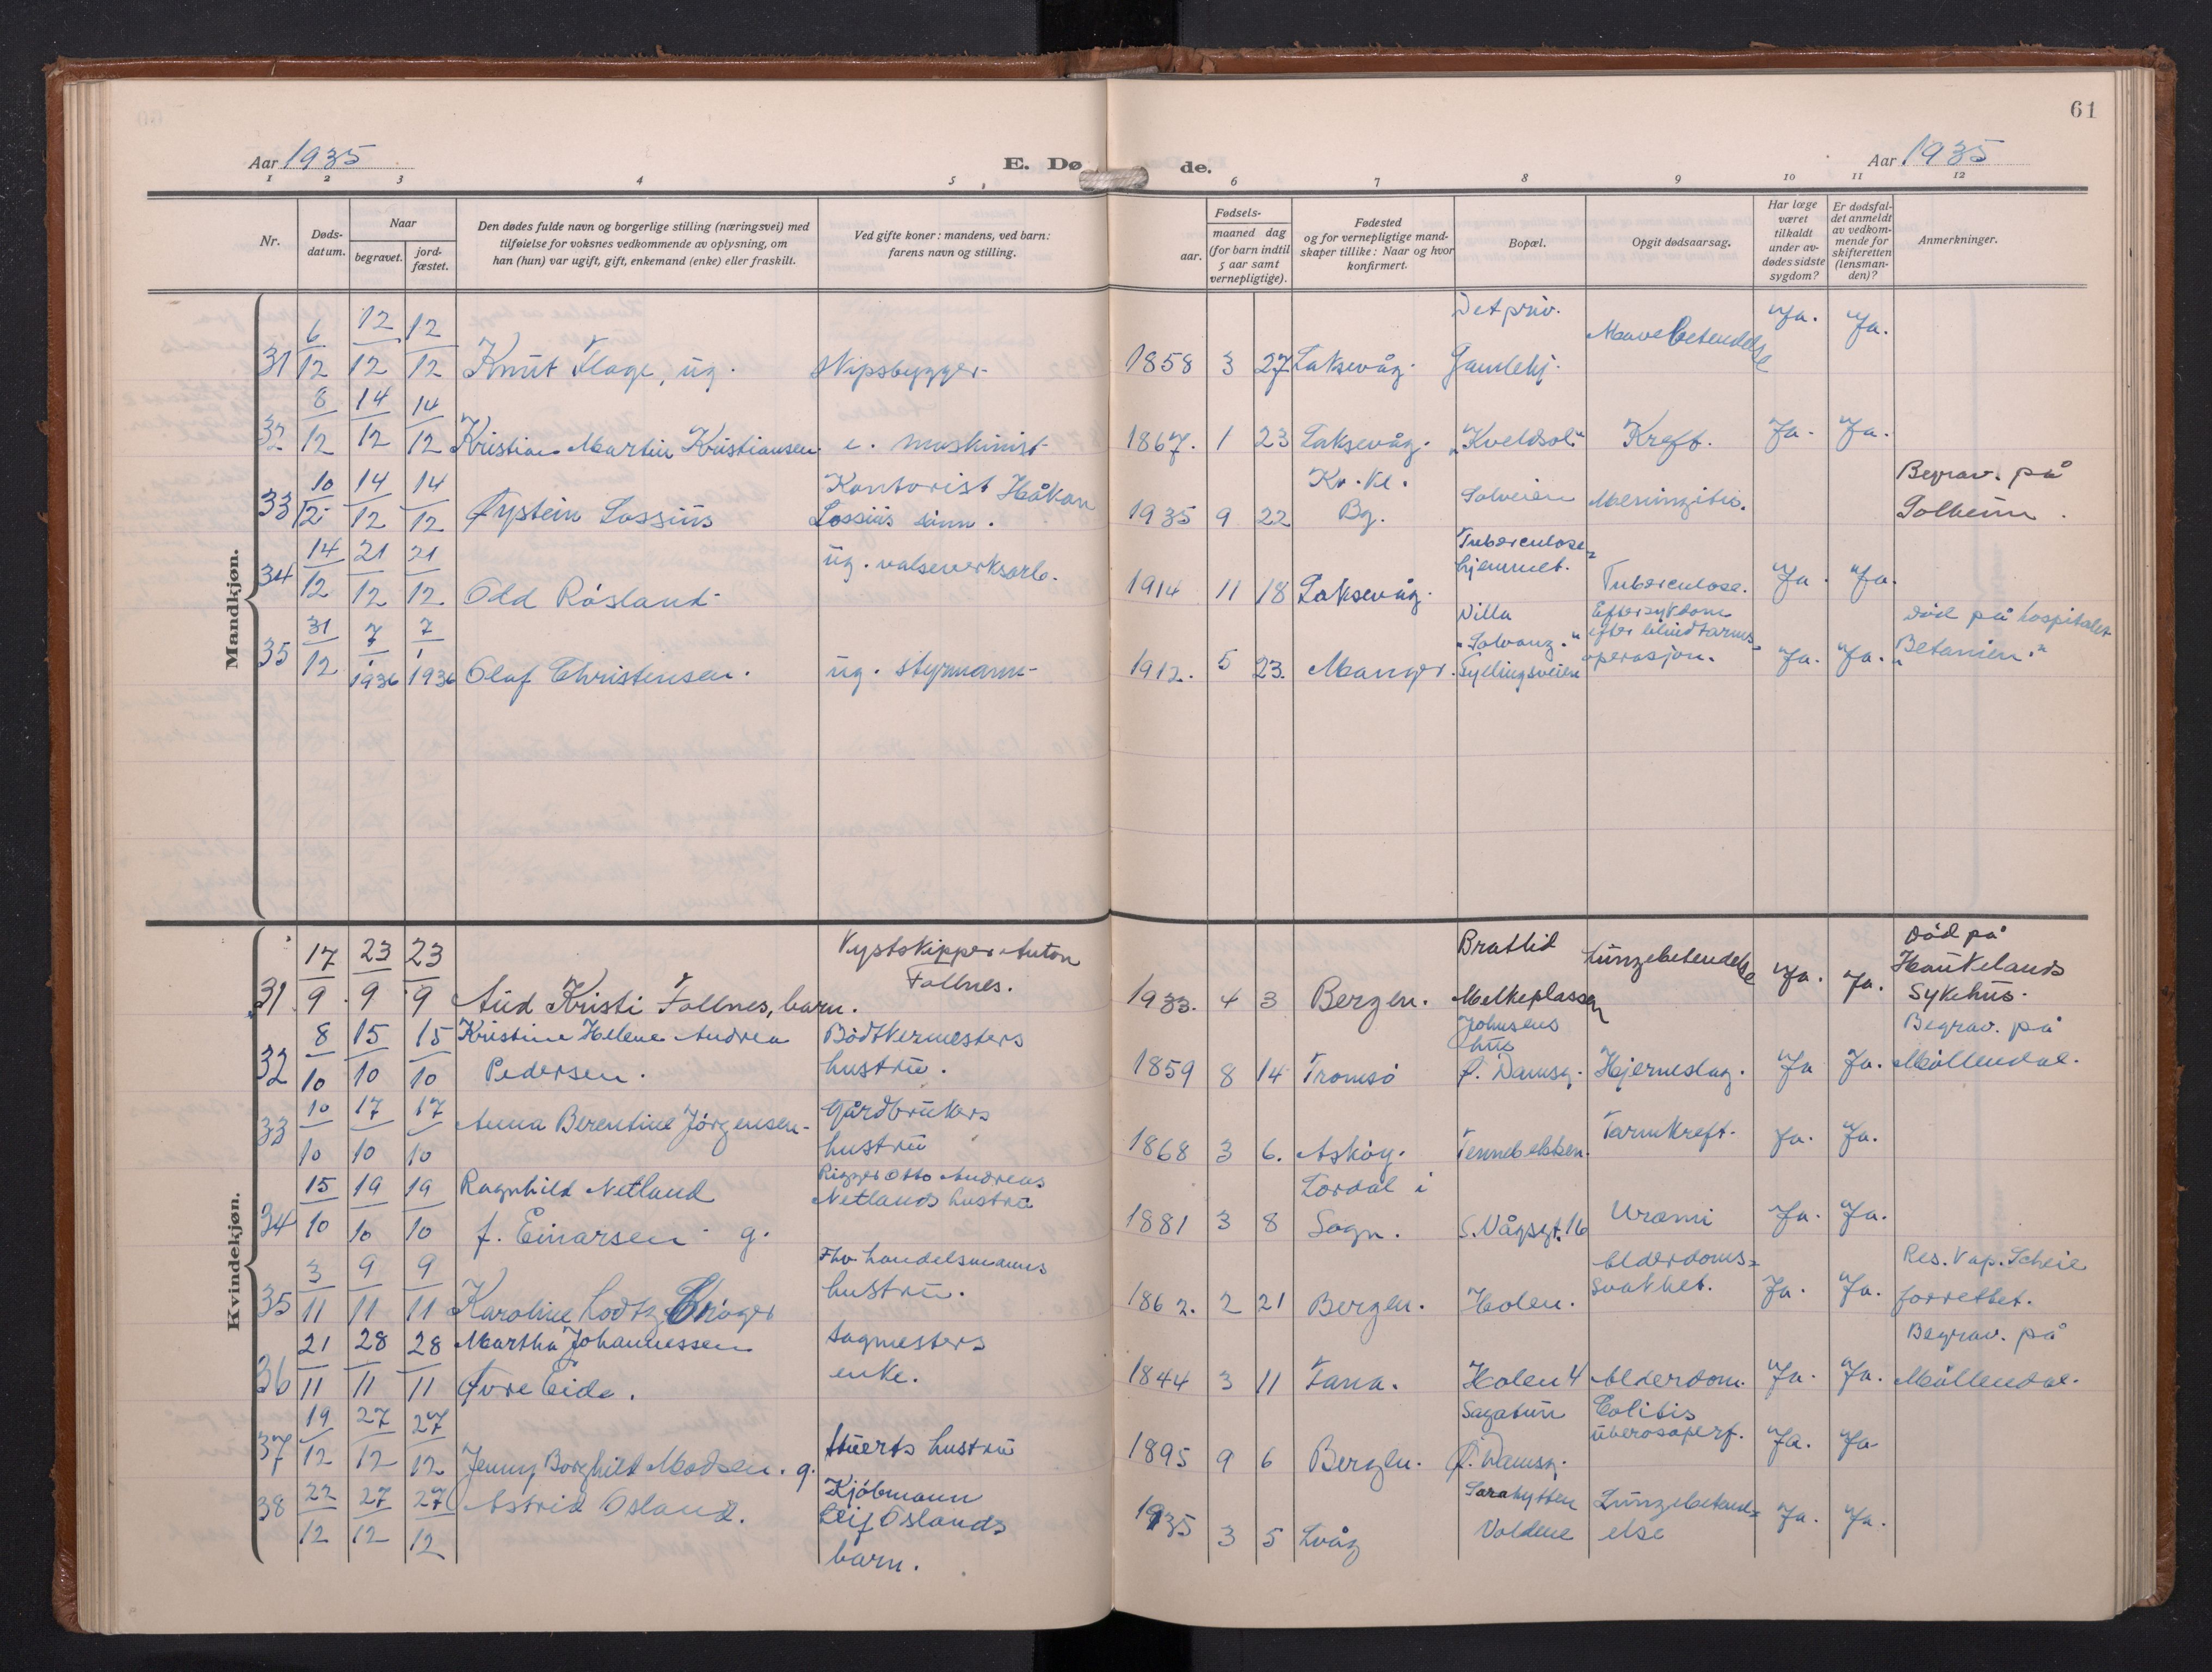 61
Aar 1935
E. Døde.
Aar 1935
1 2 3 4 5 6 7 8 9 10 11 12
Nr.
Døds-datum.
Naar
begravet.
jord-fæstet.
Den dødes fulde navn og borgerlige stilling (næringsvei) med
tilføielse for voksnes vedkommende av oplysning, om
han (hun) var ugift, gift, enkemand (enke) eller fraskilt.
Ved gifte koner: mandens, ved barn:
farens navn og stilling.
Fødsels-
aar.
maaned dag
(for barn indtil
5 aar samt
vernepligtige).
Fødested
og for vernepligtige mand-
skaper tillike: Naar og hvor
konfirmert.
Bopæl.
Opgit dødsaarsag.
Har læge
været
tilkaldt
under av-
dødes sidste
sygdom?
Er dødsfal-
det anmeldt
av vedkom-
mende for
skifteretten
(lensman-
den)?
Anmerkninger.
Mandkjøn.
31 6/12 12/12 12/12 Knut Flage, ug. skipsbygger 1858 3 27 Laksevåg. Det priv. Gamlehj. Mavebetendelse Ja. Ja.
32 8/12 14/12 14/12 Kristian Martin Kristiansen e. maskinist 1867. 1 23 Laksevåg. "Kveldsol" Kreft. Ja. Ja.
33 10/12 14/12 14/12 Øystein Lossius Kontorist Håkon Lossius sønn. 1935 9 22 Kv. kl. Bg. Solveien Meningitis. Begrav. på Solheim.
34 14/12 21/12 21/12 Odd Røsland ug. valseverksarb. 1914 11 18 Laksevåg. Tuberculose-hjemmet. Tuberculose. Ja. Ja.
35 31/12 7/1 1936 7/1 1936 Olaf Christensen. ug. styrmann 1912. 5 23. Manger. Villa "Solvang." Fyllingsveien Eftersykdom efter blindtarms-operasjon. Ja. Ja. Død på hospitalet "Betanien."
Kvindekjøn.
31 17/9 23/9 23/9 Aud Kristi Follnes, barn. Kystskipper Anton Follnes. 1933. 4 3 Bergen. Bratlid Melkeplassen Lungebetendelse Ja. Ja. Død på Haukelands Sykehus.
32 8/10 15/10 15/10 Kristine Helene Andrea Pedersen. Bødtkermesters hustru. 1859 8 14 Tromsø Johnsens hus Ø. Damsg. Hjerneslag. Ja Ja. Begrav. på Møllendal.
33 10/10 17/10 17/10 Anna Berentine Jørgensen Gårdbrukers hustru 1868 3 6. Askøy. Tennebekken. Tarmkreft. Ja. Ja.
34 15/10 19/10 19/10 Ragnhild Netland f. Einarsen g. Rigger Otto Andreas Netlands hustru 1881 3 8 Lordal i Sogn. S. Vågsgt. 16 Urämi Ja. Ja.
35 3/11 9/11 9/11 Karoline Lodtz Krøger Fhv handelsmanns hustru. 1862. 2 21 Bergen. Holen. Alderdoms-svakhet. Ja. Ja. Res. kap. Scheie forrettet.
36 21/11 28/11 28/11 Martha Johannessen Øvre Eide. Sagmesters enke. 1844 3 11 Fana. Holen 4 Alderdom. Ja. Ja. Begrav. på Møllendal.
37 19/12 27/12 27/12 Jenny Borghild Madsen. g. Stuerts hustru 1895 9 6 Bergen. Sagatun Ø. Damsg. Colitis Ja. Ja
38 22/12 27/12 27/12 Astrid Osland. Kjøbmann Leif Oslands barn. 1935 3 5 Lvåg Sarahytten Voldene Lungebetend-else Ja. Ja.